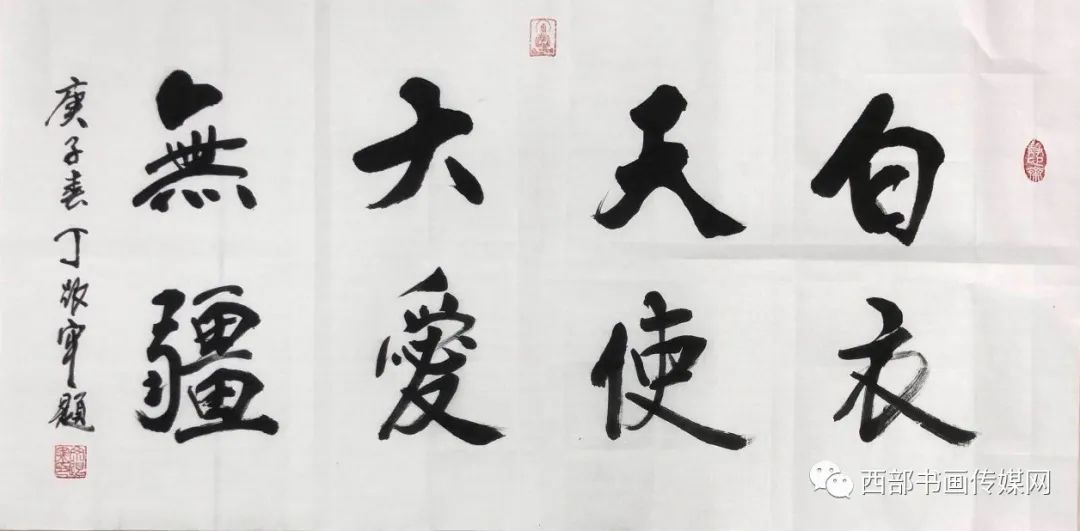 白衣
天使
大愛
無疆
庚子春丁啟軍題
西部书画传媒网